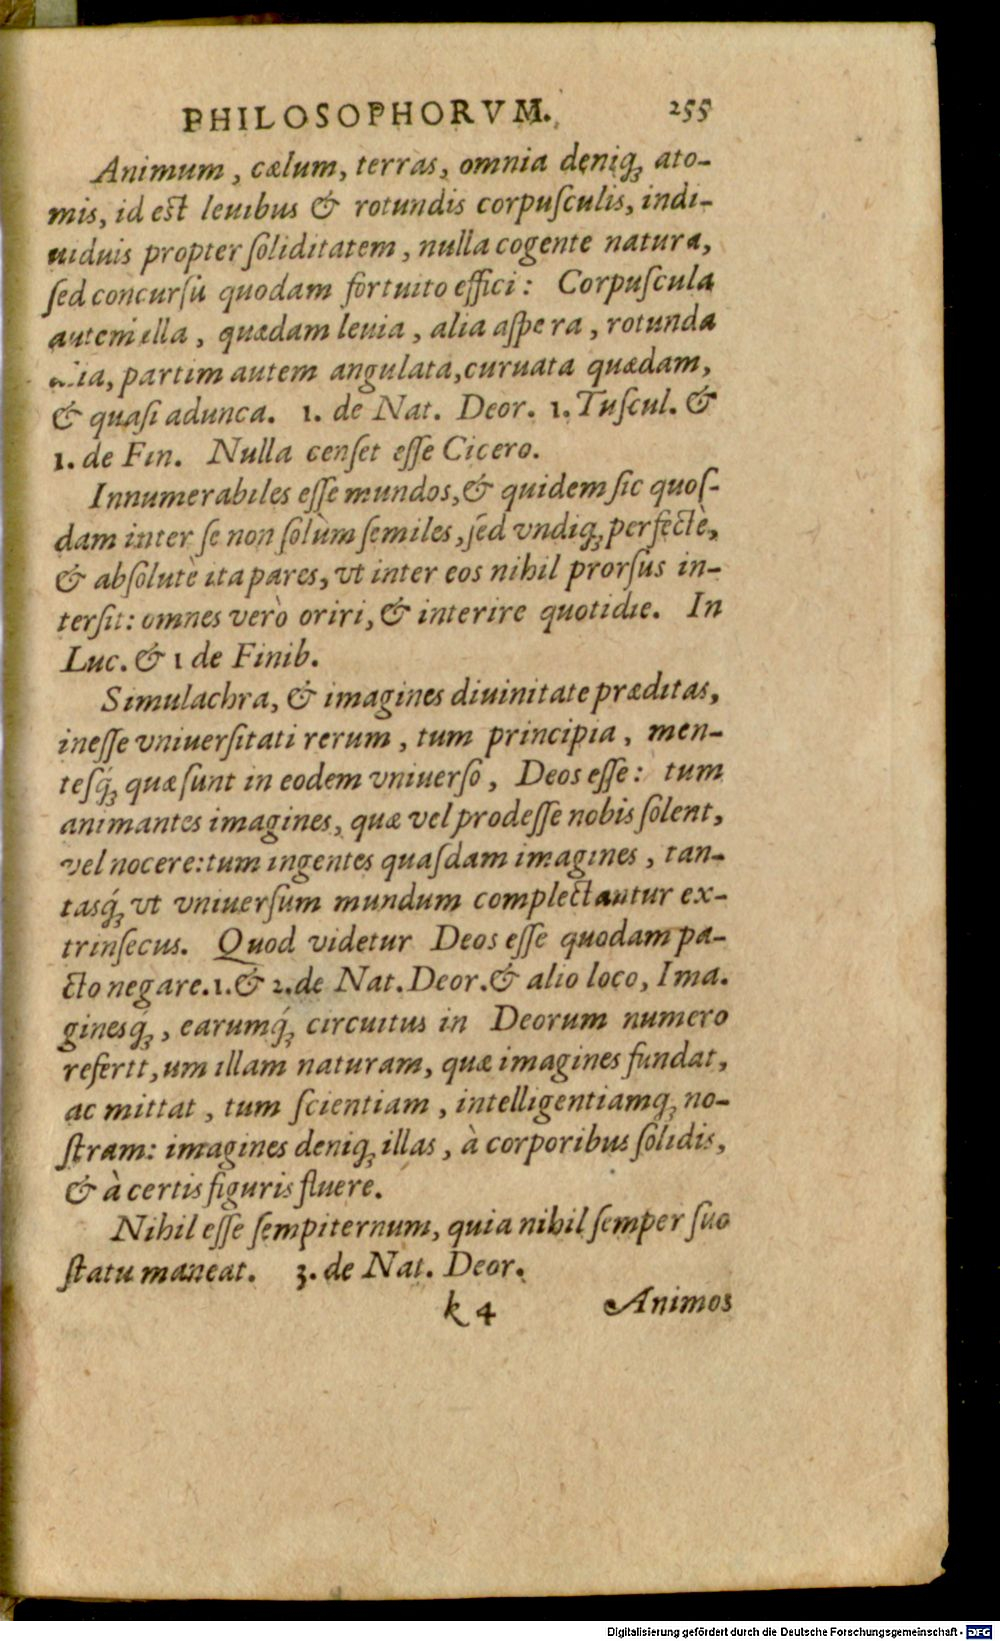 PHILOSOPHORVM. 255
Animum, cælum, terras, omnia deniq́ꝫ ato-
mis, id est leuibus & rotundis corpuſculis, indi-
uiduis propter ſoliditatem, nulla cogente natura,
ſed concurſu quodam fortuito effici: Corpuſcula
autem illa, quædam leuia, alia aſpera, rotunda
alia, partim autem angulata, curuata quædam,
& quaſi adunca. 1. de Nat. Deor. 1. Tuſcul. &
1. de Fin. Nulla cenſet eſſe Cicero.
Innumerabiles eſſe mundos, & quidem ſic quoſ-
dam inter ſe non ſolùm ſemiles, ſed vndiq́ꝫ perfectè,
& abſolutè ita pares, vt inter eos nihil prorſus in-
terſit: omnes verò oriri, & interire quotidie. In
Luc. & 1 de Finib.
Simulachra, & imagines diuinitate præditas,
ineſſe vniuerſitati rerum, tum principia, men-
teſq́ꝫ quæ ſunt in eodem vniuerſo, Deos eſſe: tum
animantes imagines, quæ vel prodeſſe nobis ſolent,
vel nocere: tum ingentes quaſdam imagines, tan-
tasq́ꝫ vt vniuerſum mundum complectantur ex-
trinſecus. Quod videtur Deos eſſe quodam pa-
cto negare. 1. & 2. de Nat. Deor. & alio loco, Ima.
ginesq́ꝫ, earumq́ꝫ circuitus in Deorum numero
refertt, um illam naturam, quæ imagines fundat,
ac mittat, tum ſcientiam, intelligentiamqꝫ no-
ſtram: imagines deniqꝫ illas, à corporibus ſolidis,
& à certis figuris fluere.
Nihil eſſe ſempiternum, quia nihil ſemper ſuo
ſtatu maneat. 3. de Nat. Deor.
k 4 Animos
Digitalisierung gefördert durch die Deutsche Forschungsgemeinschaft - DFG